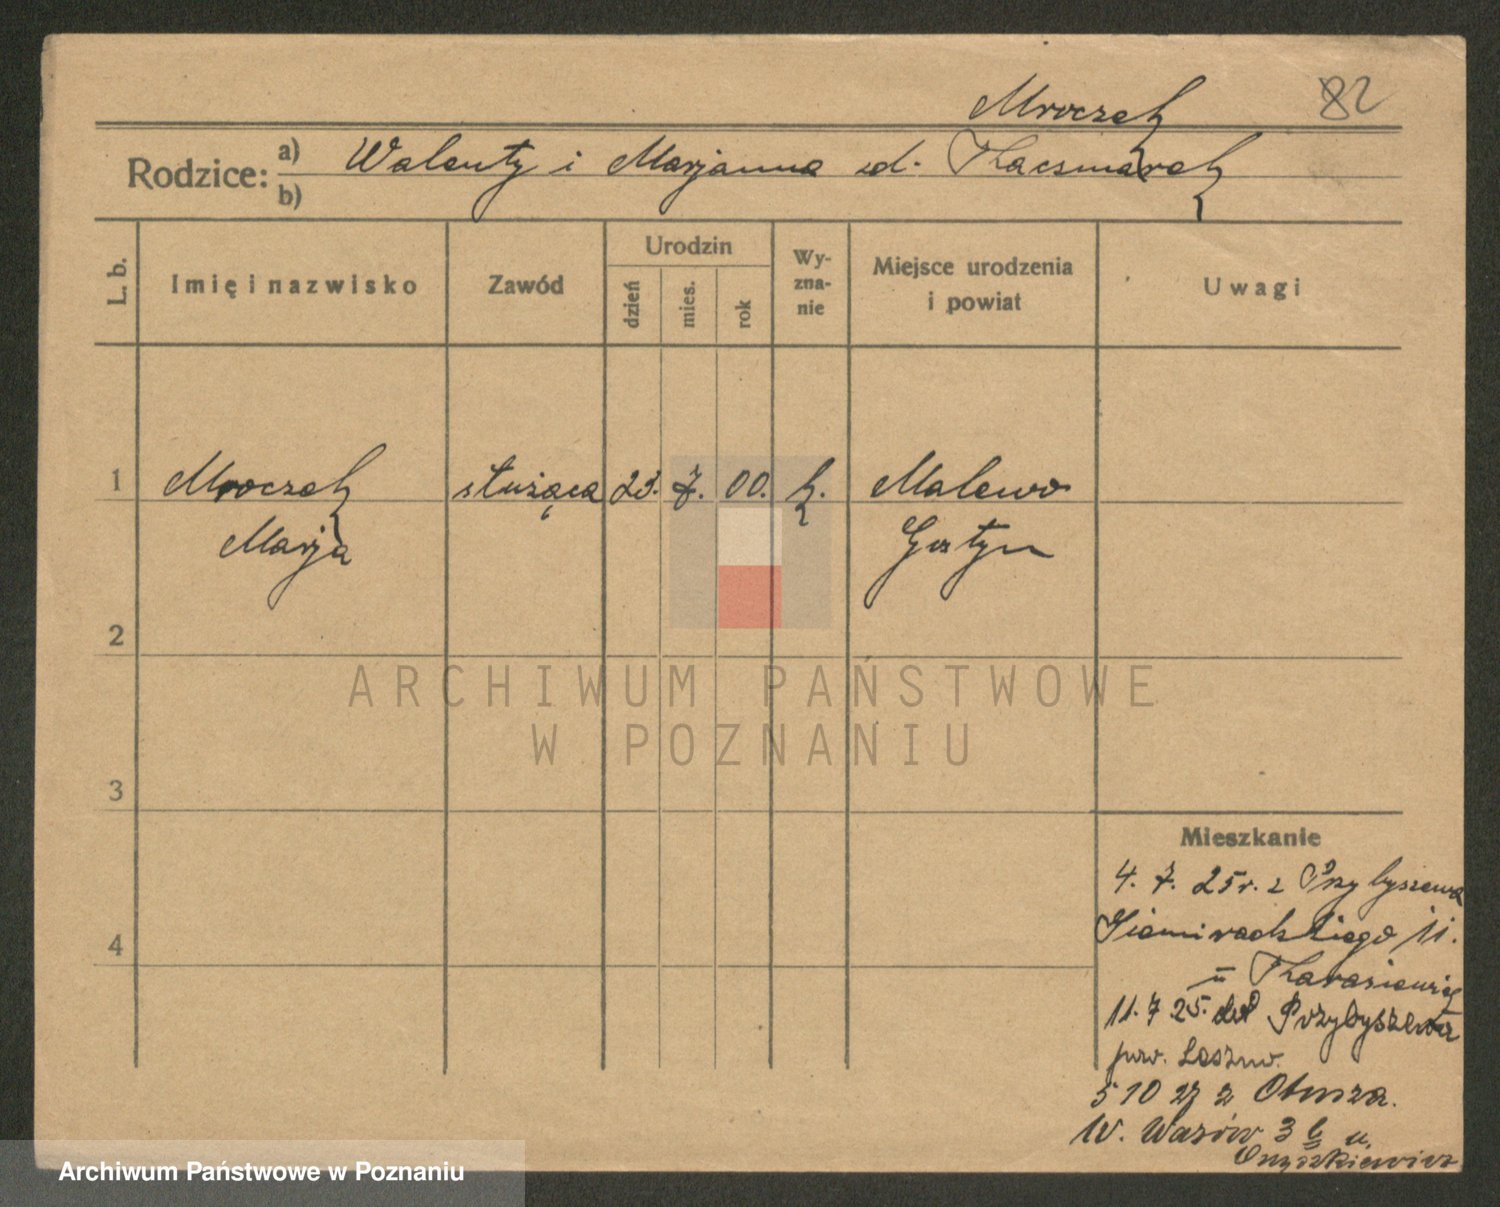 82
Mroczek
Rodzice: a) Walenty i Marjanna zd. Kaczmarek
b)
L. b.
Imię i nazwisko
Zawód
Urodzin
dzień
mies.
rok
Wy-
zna-
nie
Miejsce urodzenia
i powiat
Uwagi
1 Mroczek służąca 23. 7. 00. k. Malewo
Marja Gostyn
2
ARCHIWUM PAŃSTWOWE
W POZNANIU
3
Mieszkanie
4. 7. 25 r. z Przybyszewa
Siemiradzkiego 11.
4
u Karasiewicz
11. 7 25. do Przybyszewa
pow. Leszno.
5 10 27 z Otusza.
W. Wazów 3 u.
Archiwum Państwowe w Poznaniu